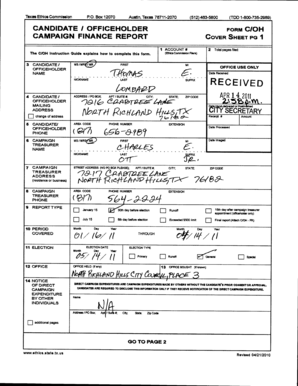 Texas Ethics Commission P.O. Box 12070 Austin, Texas 78711-2070 (512) 463-5800 (TDD 1-800-735-2989)
CANDIDATE / OFFICEHOLDER CAMPAIGN FINANCE REPORT
FORM C/OH
COVER SHEET PG 1
The C/OH Instruction Guide explains how to complete this form.
1 ACCOUNT # (Ethics Commission Filers)
2 Total pages filed:
3 CANDIDATE / OFFICEHOLDER NAME
MS / MRS / MR FIRST MI
THOMAS E.
NICKNAME LAST SUFFIX
LOMBARD
OFFICE USE ONLY
Date Received
RECEIVED
APR 14 2011
2:58 p.m.
CITY SECRETARY
4 CANDIDATE / OFFICEHOLDER MAILING ADDRESS
change of address
ADDRESS / PO BOX; APT / SUITE #; CITY; STATE; ZIP CODE
7216 CRABTREE LANE
NORTH RICHLAND HILLS, TX
76182
Receipt # Amount
5 CANDIDATE/ OFFICEHOLDER PHONE
AREA CODE PHONE NUMBER EXTENSION
(817) 656-2989
Date Processed
6 CAMPAIGN TREASURER NAME
MS / MRS / MR FIRST MI
CHARLES E.
NICKNAME LAST SUFFIX
OTT SR.
Date Imaged
7 CAMPAIGN TREASURER ADDRESS
(Residence or business)
STREET ADDRESS (NO PO BOX PLEASE); APT / SUITE #; CITY; STATE; ZIP CODE
7217 CRABTREE LANE
NORTH RICHLAND HILLS, TX 76182
8 CAMPAIGN TREASURER PHONE
AREA CODE PHONE NUMBER EXTENSION
(817) 564-2224
9 REPORT TYPE
January 15
30th day before election
Runoff
15th day after campaign treasurer appointment (officeholder only)
July 15
8th day before election
Exceeded $500 limit
Final report (Attach C/OH - FR)
10 PERIOD COVERED
Month Day Year
01 / 16 / 11
THROUGH
Month Day Year
04 / 14 / 11
11 ELECTION
ELECTION DATE
Month Day Year
05 / 14 / 11
ELECTION TYPE
Primary
Runoff
General
Special
12 OFFICE
OFFICE HELD (if any)
13 OFFICE SOUGHT (if known)
NORTH RICHLAND HILLS CITY COUNCIL, PLACE 3
14 NOTICE OF DIRECT CAMPAIGN EXPENDITURE BY OTHER INDIVIDUALS
additional pages
Name
N/A
Address / PO Box; Apt / Suite #; City; State; Zip Code
GO TO PAGE 2
www.ethics.state.tx.us
Revised 04/21/2010